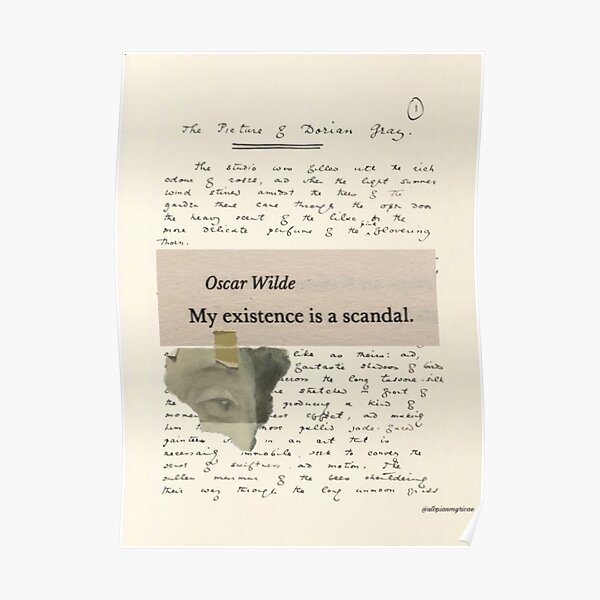 1
The Picture of Dorian Gray.
The studio was filled with the rich
odour of roses, and when the light summer
wind stirred amidst the trees of the
garden there came through the open door
the heavy scent of the lilac, or the
more delicate perfume of the pink flowering
thorn.
Oscar Wilde
My existence is a scandal.
like as theirs: and,
fantastic shadows of birds
across the long tussore-silk
stretched in front of
the producing a kind of
effect, and making
him pallid jade-faced
painters in an art that is
necessarily immobile, seek to convey the
sense of swiftness and motion. The
sullen murmur of the bees shouldering
their way through the long unmown grass